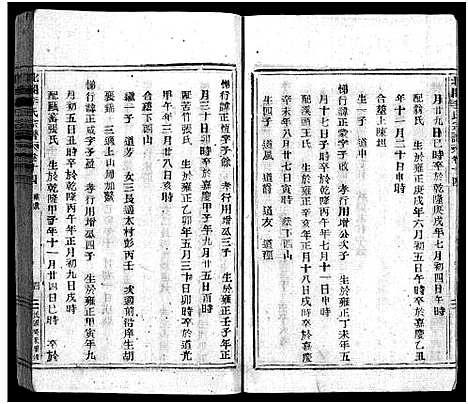 月廿九日巳時 卒於乾隆庚戌年七月初五日午時
配王氏 生於雍正庚戌年六月初五日午時 卒於嘉慶乙丑
年十二月廿二日辰時
合塟上陳坦
悌行諱正蒙字子養 孝行用增公次子 生於雍正丁未年五
月十七日午時 卒於乾隆丙午年七月十一日申時
配翁氏 生於雍正辛亥年正月十八日戌時 卒於嘉慶
辛未年八月廿五日酉時 塟下西山
子三 道周 道爵 道源
悌行諱正恆字子餘 孝行用增公三子 生於雍正壬子年正
月三十日卯時 卒於嘉慶甲子年九月廿五日酉時
配苦竹張氏 生於雍正乙卯年五月三十日卯時 卒於道光
甲午年三月廿八日亥時
合塟下西山
繼一子 道芳 女三 長適太村彭丙壬 次適前衖徐生胡
襄錦 三適上山周加獻
悌行諱正咸字子盈 孝行用增公四子 生於雍正甲寅年九
月初五日丑時 卒於乾隆丙午年正月初九日戌時
配陳畲張氏 生於乾隆甲子年十一月廿四日巳時 卒於